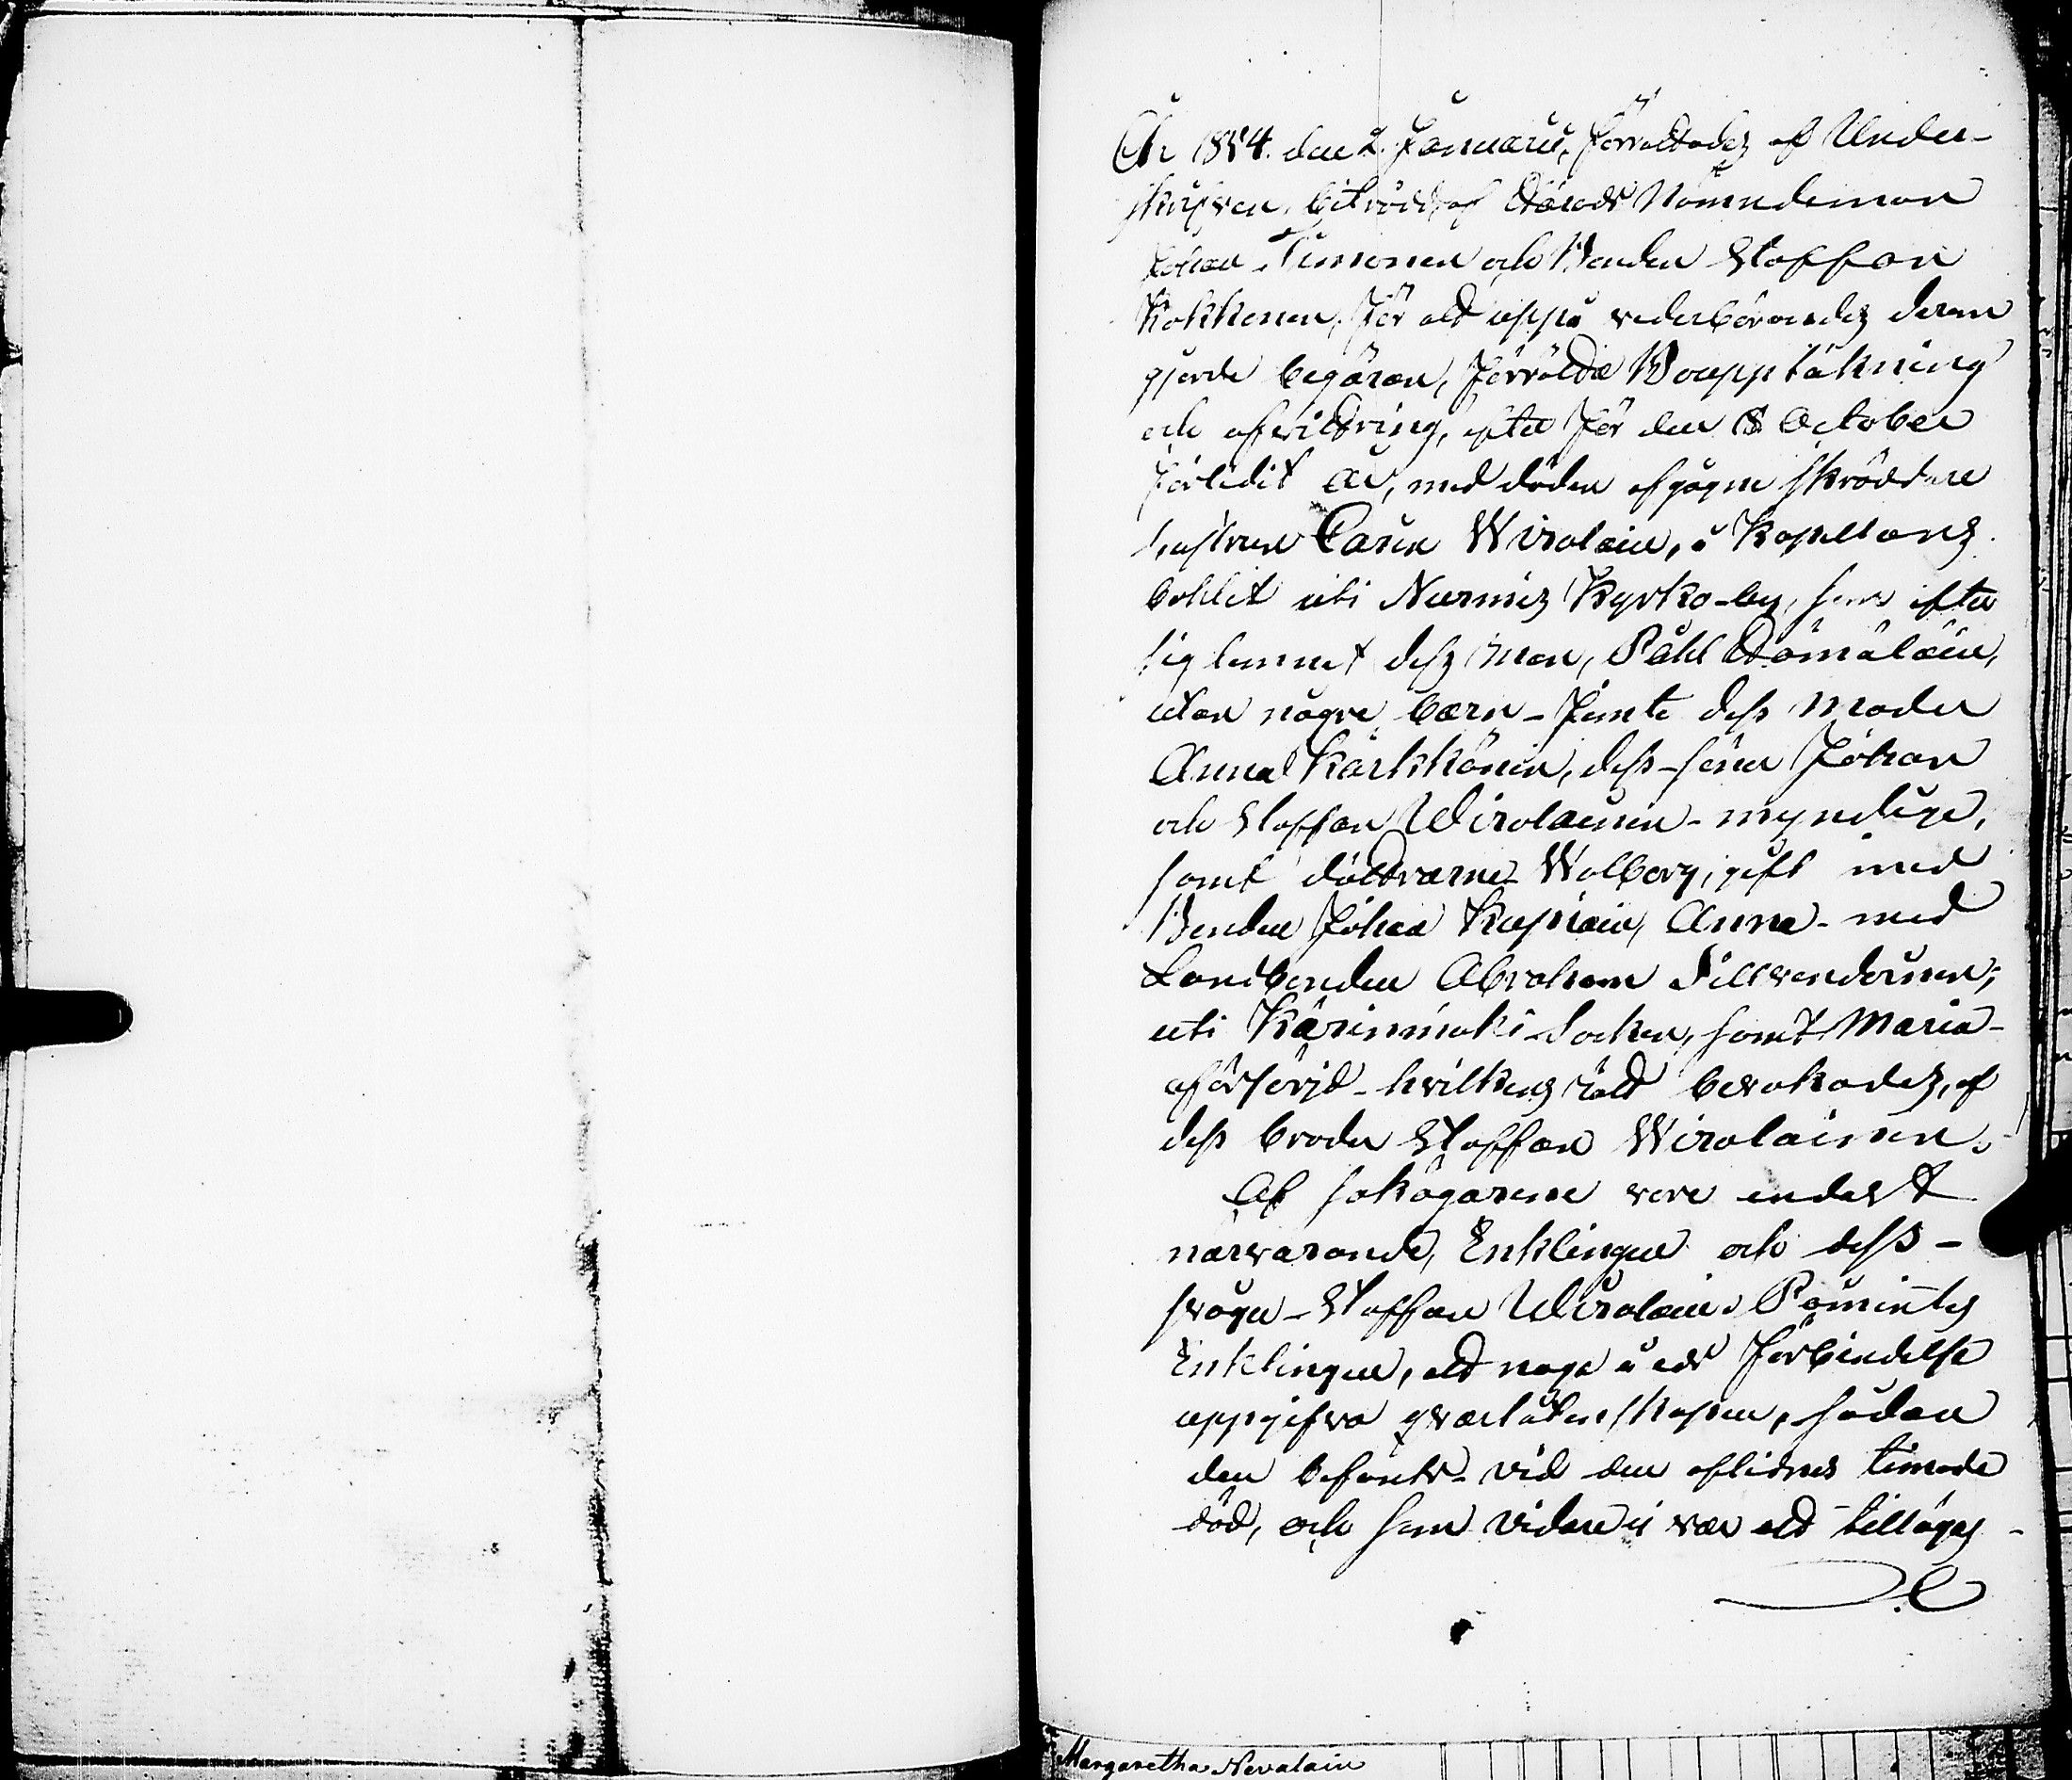 År 1814 den 2 Januarii, förrättades af Under-
skrifven, biträdd af Härads Nämndeman
Johan Timonen och Bonden Staffan
Kokkonen, för att uppå vederbörandes derom
gjorde begäran, förrätta Bouppteckning
och afvittring, efter för den 8 October
förledit år, med döden afgågne skräddare
hustrun Carin Wirolain, å Kapellans
bohlet uti Nurmis Kyrko-by, som efter
sig lemnat dess man, Påhl Hämäläin,
utan några barn - jemte dess moder
Anna Kärkkönen, dess söner Johan
och Staffan Wirolainen - myndige,
samt döttrarne Walborg, gift med
Bonden Johan Kapiain, Anna - med
Landbonden Abraham Sillvendoinen,
uti Kärimäki Socken, samt Maria -
oförsörjd - hvilkens rätt bevakades, af
dess broder Staffan Wirolainen.
Af sakägarene voro endast
närvarande, Enklingen och dess -
svåger - Staffan Wirolain. Påmintes
Enklingen, att noga å eds förbindelse
uppgifva qvarlåtenskapen, sådan
den befants - vid den aflidnes timade
död, och som vidare ej var att tillägas -
Margaretha Nevalain